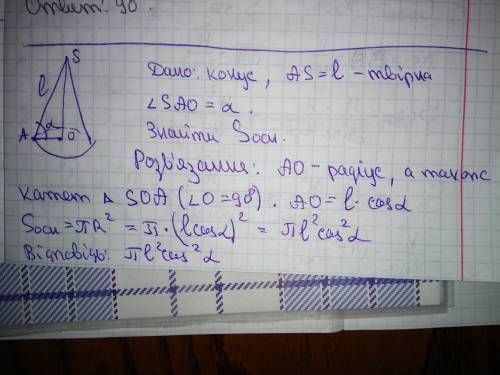 Ответ: 90.
S
l
α
A
O
Дано: конус, AS = l - твірна
∠SAO = α.
Знайти Sосн.
Розв'язання: AO - радіус, а також
катет △ SOA (∠O = 90). AO = l · cosα
Sосн = πR² = π · (l cosα)² = πl²cos²α
Відповідь: πl²cos²α